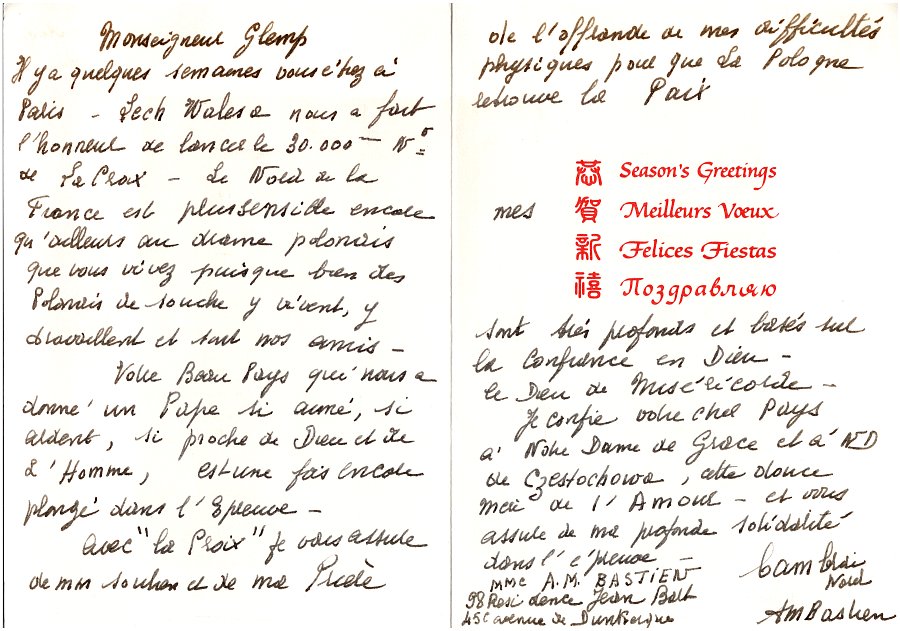 Monseigneur Glemp
Il y a quelques semaines vous étiez à
Paris - Lech Walesa nous a fait
l'honneur de lancer le 30.000 - Nº
de La Croix - Le Nord de la
France est plus sensible encore
qu'ailleurs au drame polonais
que vous vivez puisque bien des
Polonais de souche y vivent, y
travaillent et sont nos amis -
Votre Beau Pays qui nous a
donné un Pape si aimé, si
ardent, si proche de Dieu et de
L'Homme, est une fois encore
plongé dans l'Epreuve -
Avec "la Croix" je vous assure
de mon soutien et de ma Prière
de l'offrande de mes difficultés
physiques pour que La Pologne
retrouve la Paix
恭 Season's Greetings
mes 賀 Meilleurs Vœux
新 Felices Fiestas
禧 Поздравляю
sont très profonds et basés sur
la Confiance en Dieu -
le Dieu de Miséricorde -
Je confie votre cher Pays
à Notre Dame de Grace et à ND
de Czestochowa, cette douce
mère de l'Amour - et vous
assure de ma profonde solidarité
dans l'épreuve -
Mme A.M. BASTIEN
98 Résidence Jean Bart
45 avenue de Dunkerque
Cambrai
Nord
AMBastien